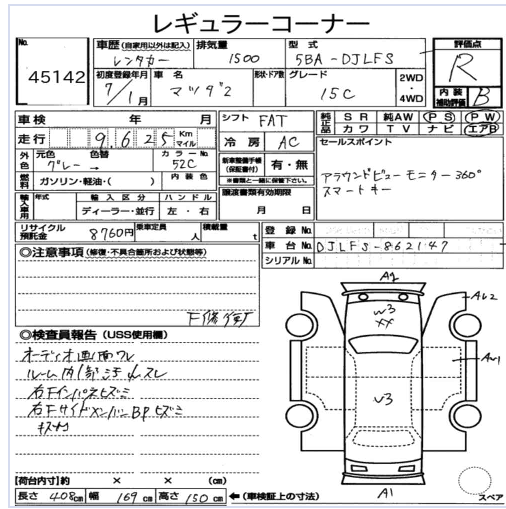 レギュラーコーナー
No.
45142
車歴 (自家用以外は記入) 排気量 型式 評価点
レンタカー 1500 5BA-DJLFS R
初度登録年月 車名 形状・ドア数 グレード 2WD・4WD 内装補助評価
7/1月 マツダ2 15C B
車検 年 月 シフト FAT 純正品 SR 純AW PS PW
カワ TV ナビ エアB
走行 9,625 Km マイル 冷房 AC
セールスポイント
外色 元色 色替 カラーNo.
グレー → 52C
新車整備手帳(保証書付) 有・無
※書類と一緒に保管下さい。
アラウンドビューモニター360°
スマートキー
燃料 ガソリン・軽油・( ) 内装色
譲渡書類有効期限
月 日
輸入車用 年式 輸入区分 ハンドル
ディーラー・並行 左・右
リサイクル預託金 8760円 乗車定員 人 積載量 t
登録No.
車台No. DJLFS-862147
シリアルNo.
◎注意事項 (修復・不具合箇所および状態等)
下修復有
◎検査員報告 (USS使用欄)
オーディオ画面ワレ
ルーム内1部汚れスレ
右Fインパネヒズミ
右FサイドメンバーBPヒズミ
キズ
A2
W3
XX
AU2
AU1
U3
A1
【荷台内寸】約 × × (cm)
長さ 408cm 幅 169cm 高さ 150cm ←(車検証上の寸法)
スペア